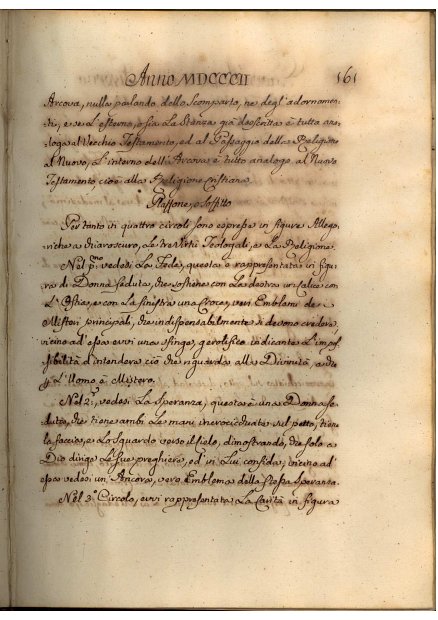 Anno MDCCCII 161
Arcova, nulla parlando dello Scomparto, ne degl'adornamen-
ti; e se l'esterno, o sia La Stanza già descritta è tutta ana-
loga al Vecchio Testamento, ed al Passaggio della Religione
al Nuovo, L'interno dell'Arcova è tutto analogo al Nuovo
Testamento, cioè alla Religione Cristiana.
Plaffone, o Soffitto
Pertanto in quattro circoli sono espresse in figure Allego-
riche a chiaroscuro, Le tre Virtù Teologali, e La Religione.
Nel p.mo vedesi La Fede, questa è rappresentata in figu-
ra di Donna seduta, che sostiene con La destra un calice con
L'Ostia, e con La sinistra una Croce, veri Emblemi de
Misteri principali, che indispensabilmente si devono credere;
vicino ad essa evvi una sfinge, geroglifico indicante L'impos-
sibilità d'intendere ciò che riguarda alla Divinità, e che
p L'Uomo è Mistero.
Nel 2.° vedesi La Speranza, questa è una Donna se-
duta, che tiene ambi Le mani incrocicchiate sul petto, tiene
la faccia, e Lo Sguardo verso il Cielo, dimostrando, che solo a
Dio dirige Le sue preghiere, ed in Lui confida; vicino ad
essa vedesi un'Ancora, vero Emblema della stessa Speranza.
Nel 3.° Circolo, evvi rappresentata La Carità in figura